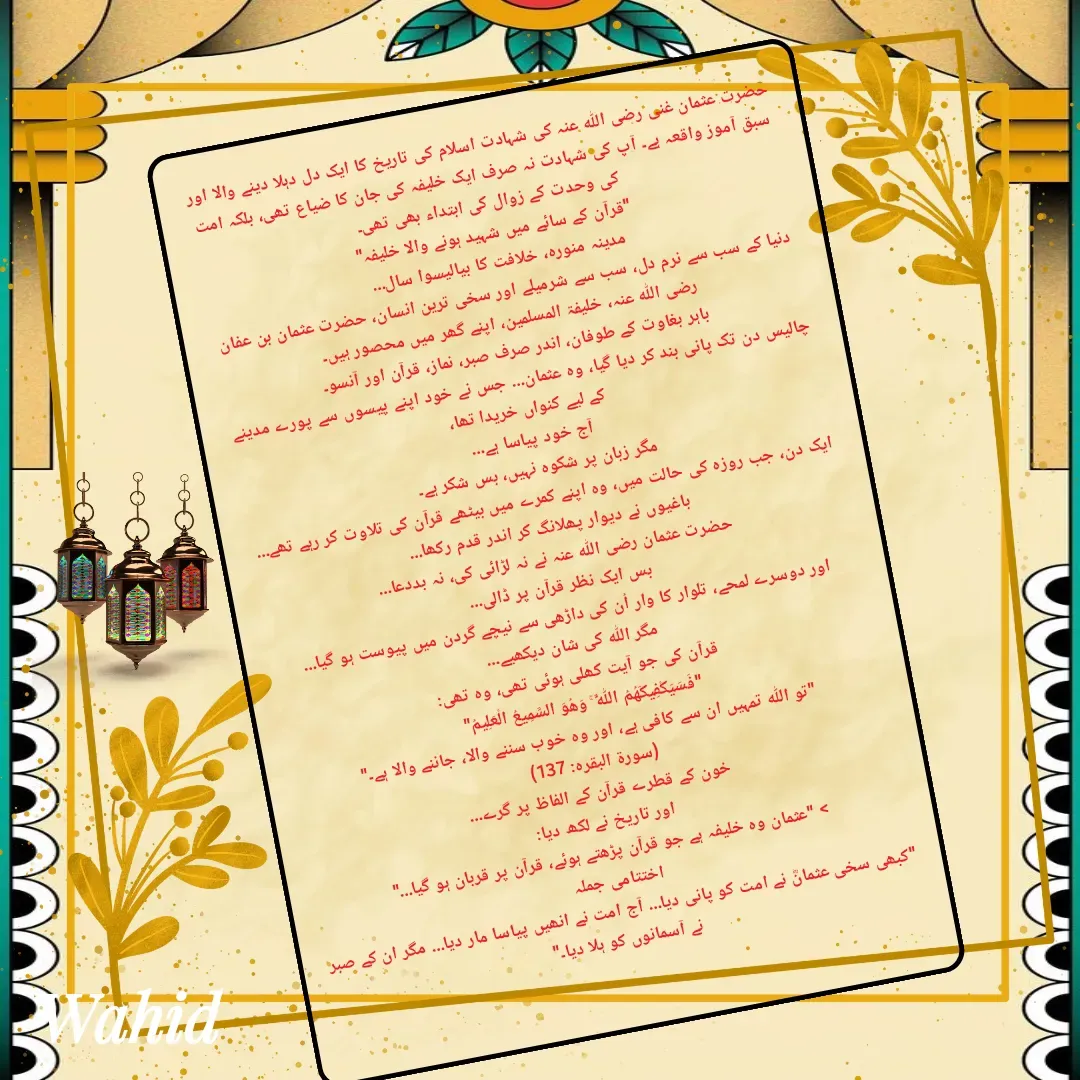 حضرت عثمان غنی رضی اللہ عنہ کی شہادت اسلام کی تاریخ کا ایک دل دہلا دینے والا اور
سبق آموز واقعہ ہے۔ آپ کی شہادت نہ صرف ایک خلیفہ کی جان کا ضیاع تھی، بلکہ امت
کی وحدت کے زوال کی ابتداء بھی تھی۔
"قرآن کے سائے میں شہید ہونے والا خلیفہ"
مدینہ منورہ، خلافت کا بیالیسوا سال...
دنیا کے سب سے نرم دل، سب سے شرمیلے اور سخی ترین انسان، حضرت عثمان بن عفان
رضی اللہ عنہ، خلیفۃ المسلمین، اپنے گھر میں محصور ہیں۔
باہر بغاوت کے طوفان، اندر صرف صبر، نماز، قرآن اور آنسو۔
چالیس دن تک پانی بند کر دیا گیا، وہ عثمان... جس نے خود اپنے پیسوں سے پورے مدینے
کے لیے کنواں خریدا تھا،
آج خود پیاسا ہے...
مگر زبان پر شکوہ نہیں، بس شکر ہے۔
ایک دن، جب روزہ کی حالت میں، وہ اپنے کمرے میں بیٹھے قرآن کی تلاوت کر رہے تھے...
باغیوں نے دیوار پھلانگ کر اندر قدم رکھا...
حضرت عثمان رضی اللہ عنہ نے نہ لڑائی کی، نہ بددعا...
بس ایک نظر قرآن پر ڈالی...
اور دوسرے لمحے، تلوار کا وار اُن کی داڑھی سے نیچے گردن میں پیوست ہو گیا...
مگر اللہ کی شان دیکھیے...
قرآن کی جو آیت کھلی ہوئی تھی، وہ تھی:
"فَسَيَكْفِيكَهُمُ اللَّهُ ۚ وَهُوَ السَّمِيعُ الْعَلِيمُ"
"تو اللہ تمہیں ان سے کافی ہے، اور وہ خوب سننے والا، جاننے والا ہے۔"
(سورۃ البقرہ: 137)
خون کے قطرے قرآن کے الفاظ پر گرے...
اور تاریخ نے لکھ دیا:
> "عثمان وہ خلیفہ ہے جو قرآن پڑھتے ہوئے، قرآن پر قربان ہو گیا..."
اختتامی جملہ
"کبھی سخی عثمانؓ نے امت کو پانی دیا... آج امت نے انھیں پیاسا مار دیا... مگر ان کے صبر
نے آسمانوں کو ہلا دیا۔"
Wahid